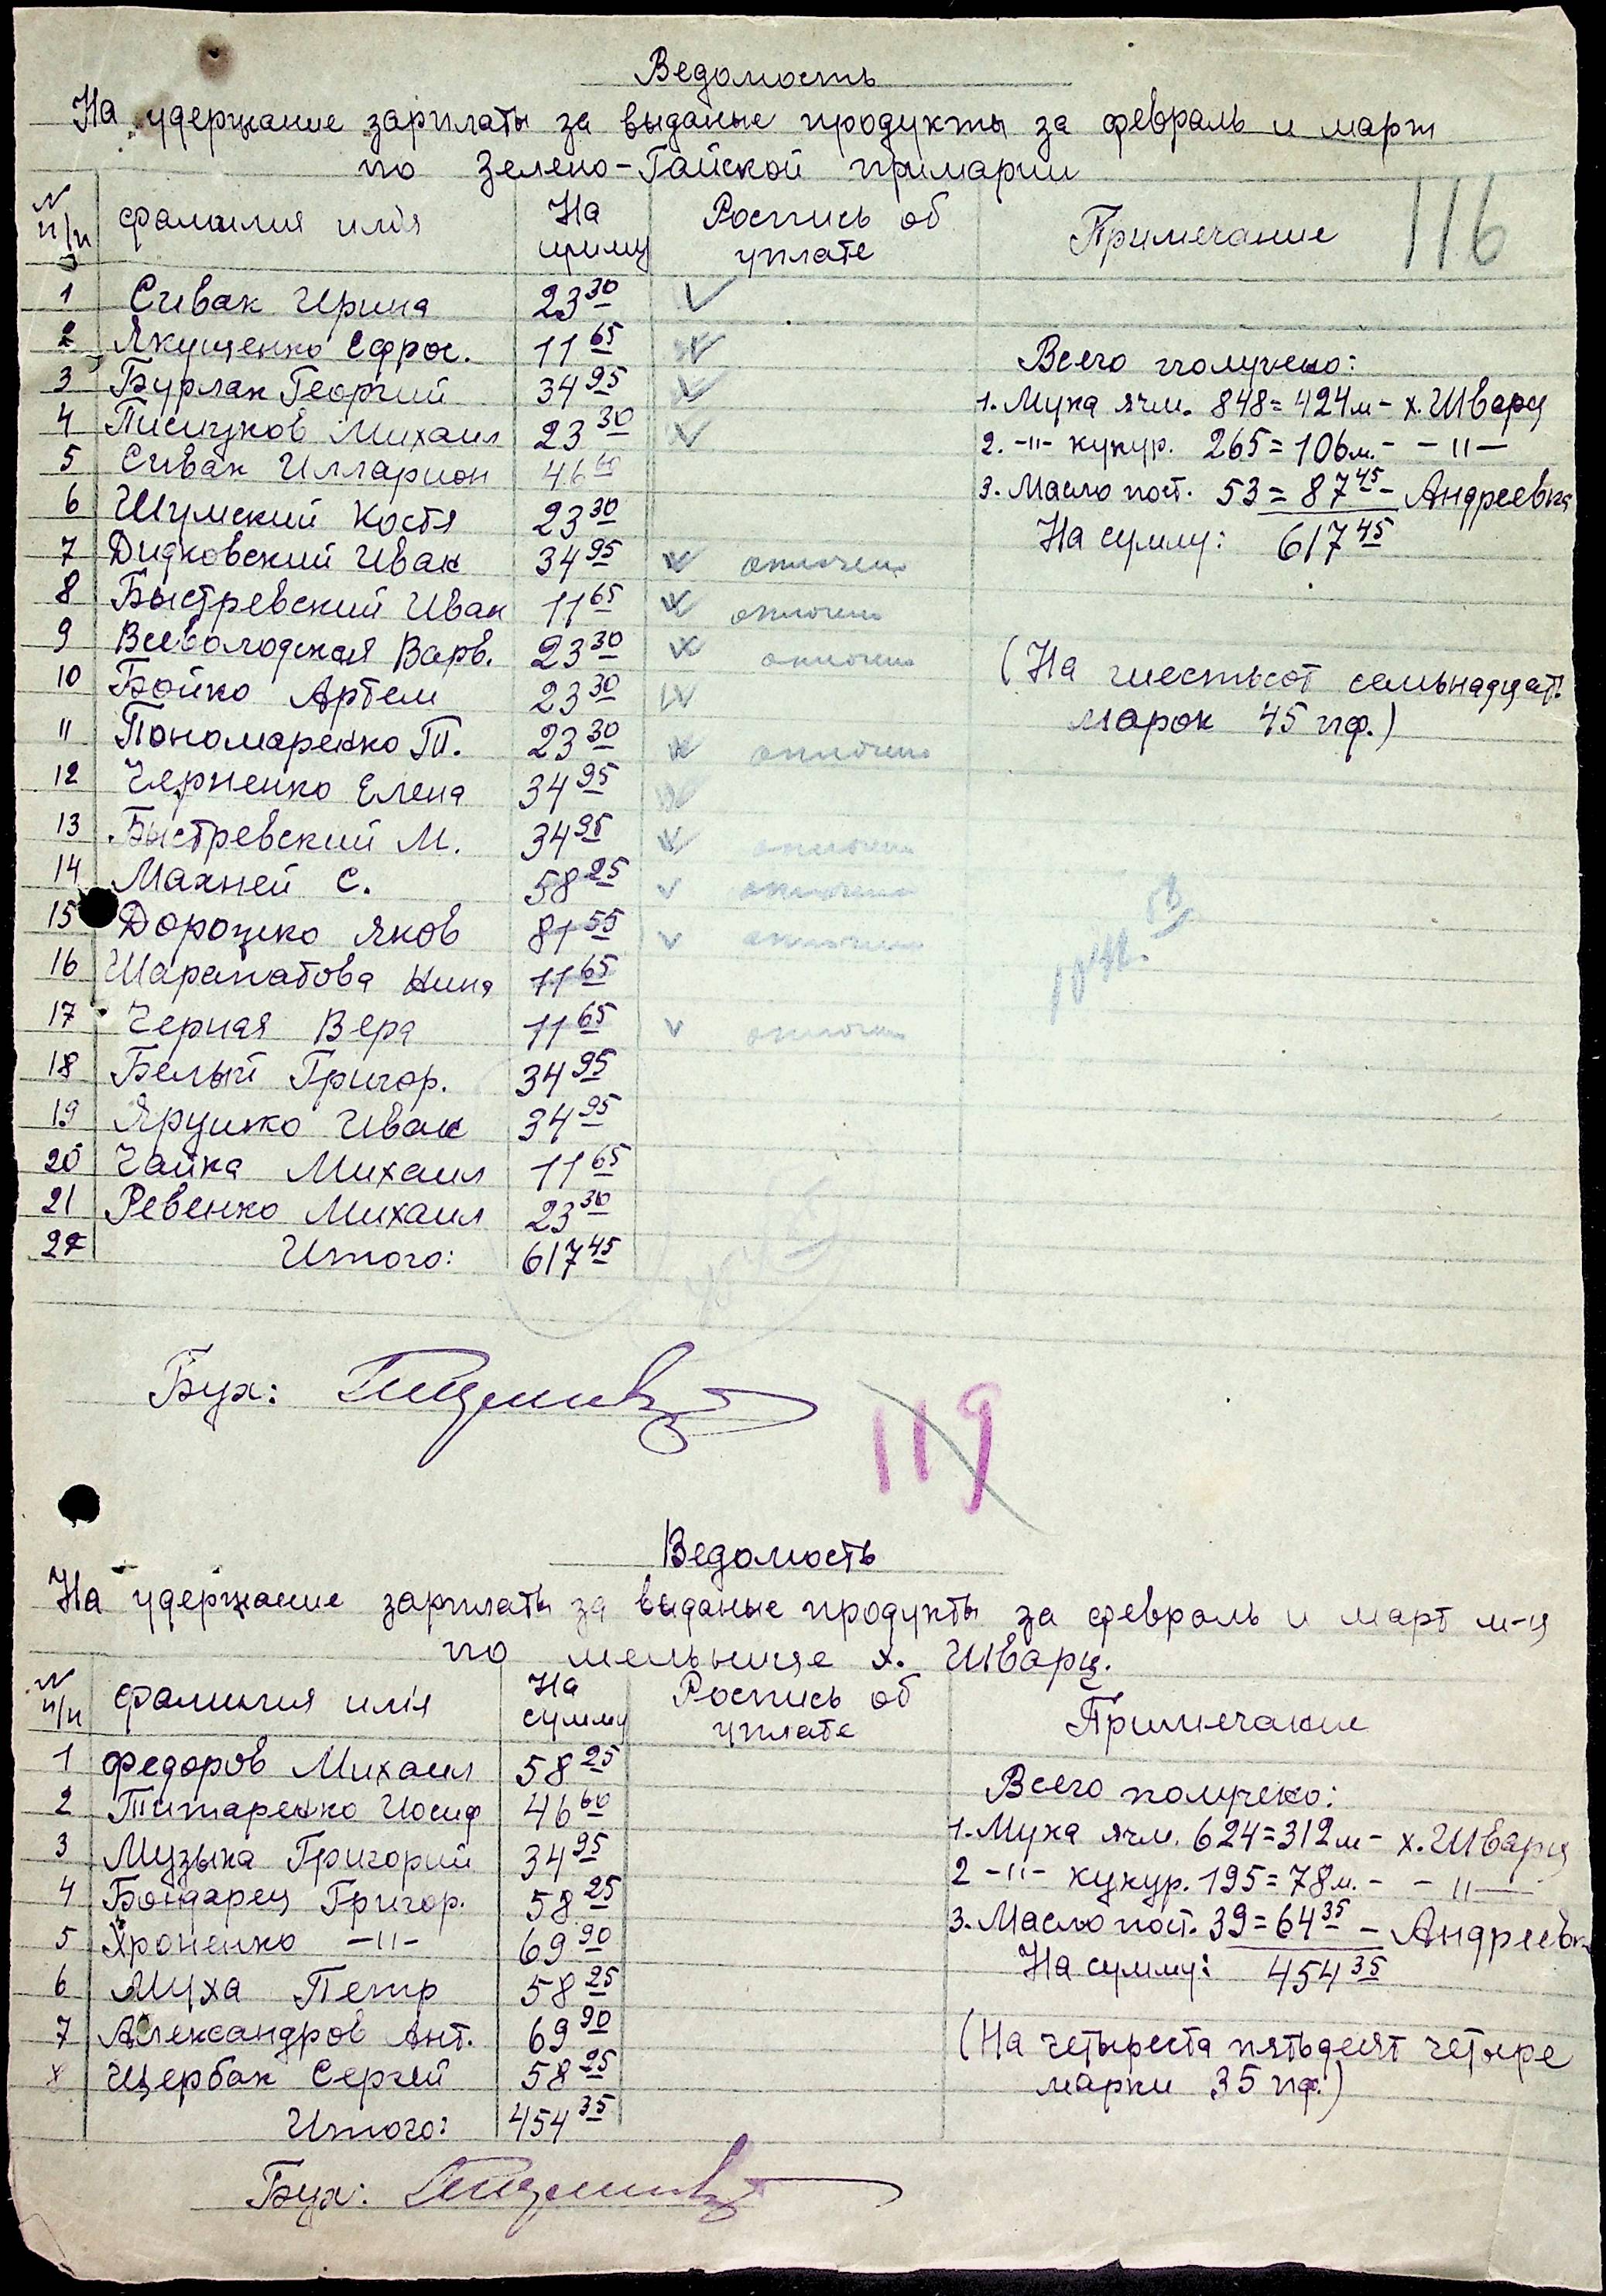 Ведомость
На удержание зарплаты за выданые продукты за февраль и март
по Зелено-Гайской примарии
116
N п/п фамилия имя На сумму Роспись об уплате Примечание
1 Сивак Ирина 23 30
2 Якущенко Ефрос. 11 65
3 Бурлак Георгий 34 95
4 Письчуков Михаил 23 30
5 Сивак Илларион 46 60
6 Шумский Костя 23 30
7 Дидковский Иван 34 95
8 Быстревский Иван 11 65
9 Всеволодская Варв. 23 30
10 Бойко Артем 23 30
11 Пономаренко Т. 23 30
12 Черненко Елена 34 95
13 Быстревский М. 34 95
14 Махней С. 58 25
15 Дорожко Яков 81 55
16 Шарапатова Нина 11 65
17 Черная Вера 11 65
18 Белый Григор. 34 95
19 Ярушко Иван 34 95
20 Чайка Михаил 11 65
21 Ревенко Михаил 23 30
22 Итого: 617 45
Всего получено:
1. Мука ячм. 848 = 424 м - х. Шварц
2. -"- кукур. 265 = 106 м. - -"-
3. Масло пост. 53 = 87 45 - Андреевка
На сумму: 617 45
(На шестьсот семьнадцать
марок 45 пф.)
Бух:
119
Ведомость
На удержание зарплаты за выданые продукты за февраль и март м-ц
по мельнице х. Шварц.
N п/п фамилия имя На сумму Роспись об уплате Примечание
1 Федоров Михаил 58 25
2 Титаренко Иосиф 46 60
3 Музыка Григорий 34 95
4 Бондарец Григор. 58 25
5 Хроненко -"- 69 90
6 Муха Петр 58 25
7 Александров Ант. 69 90
8 Щербак Сергей 58 25
Итого: 454 35
Всего получено:
1. Мука ячм. 624 = 312 м - х. Шварц
2 -"- кукур. 195 = 78 м. - -"-
3. Масло пост. 39 = 64 35 - Андреевк
На сумму: 454 35
(На четыреста пятьдесят четыре
марки 35 пф.)
Бух: